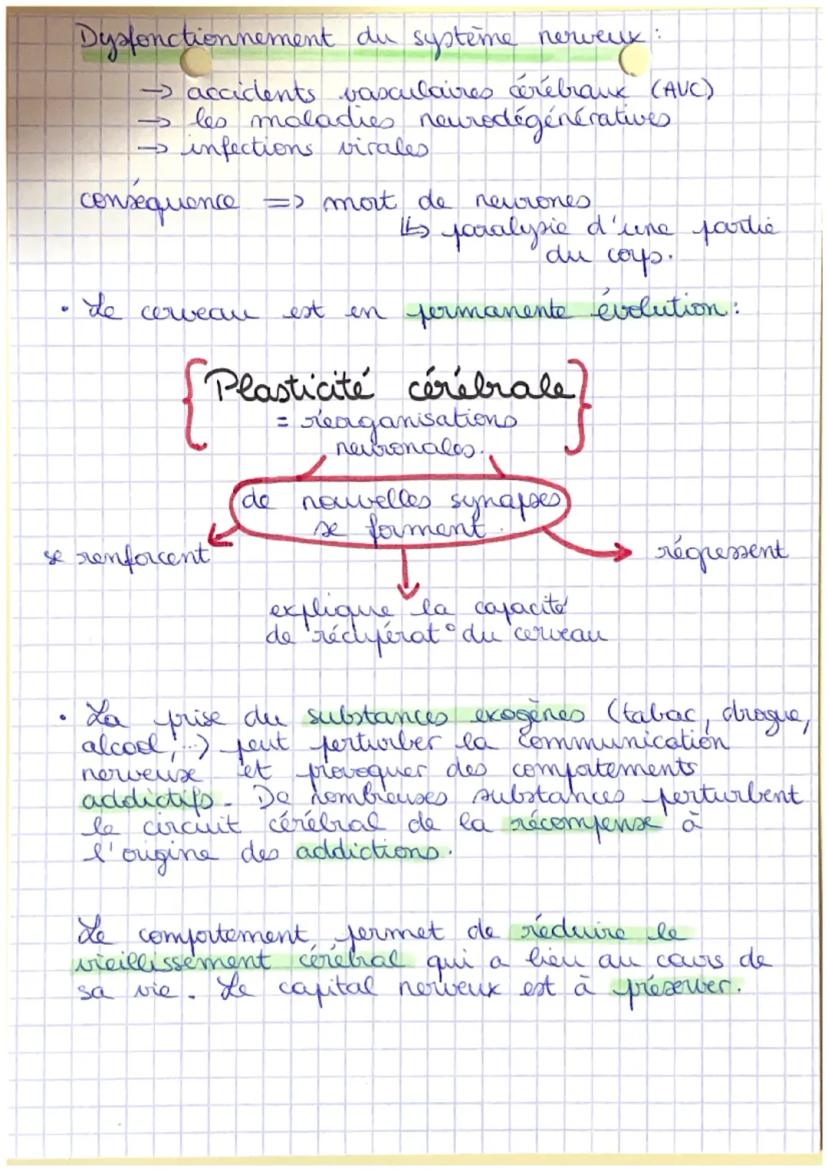 Dysfonctionnement du système nerveux :
→ accidents vasculaires cérébraux (AVC)
→ les maladies neurodégénératives
→ infections virales
conséquence => mort de neurones
↳ paralysie d'une partie
du corps.
• Le cerveau est en permanente évolution :
{Plasticité cérébrale}
= réorganisations
neuronales.
de nouvelles synapses
se forment.
se renforcent
régressent
explique la capacité
de récupérat° du cerveau
• La prise du substances exogènes (tabac, drogue,
alcool, ...) peut perturber la communication
nerveuse et provoquer des comportements
addictifs. De nombreuses substances perturbent
le circuit cérébral de la récompense à
l'origine des addictions.
Le comportement permet de réduire le
vieillissement cérébral qui a lieu au cours de
sa vie. Le capital nerveux est à préserver.